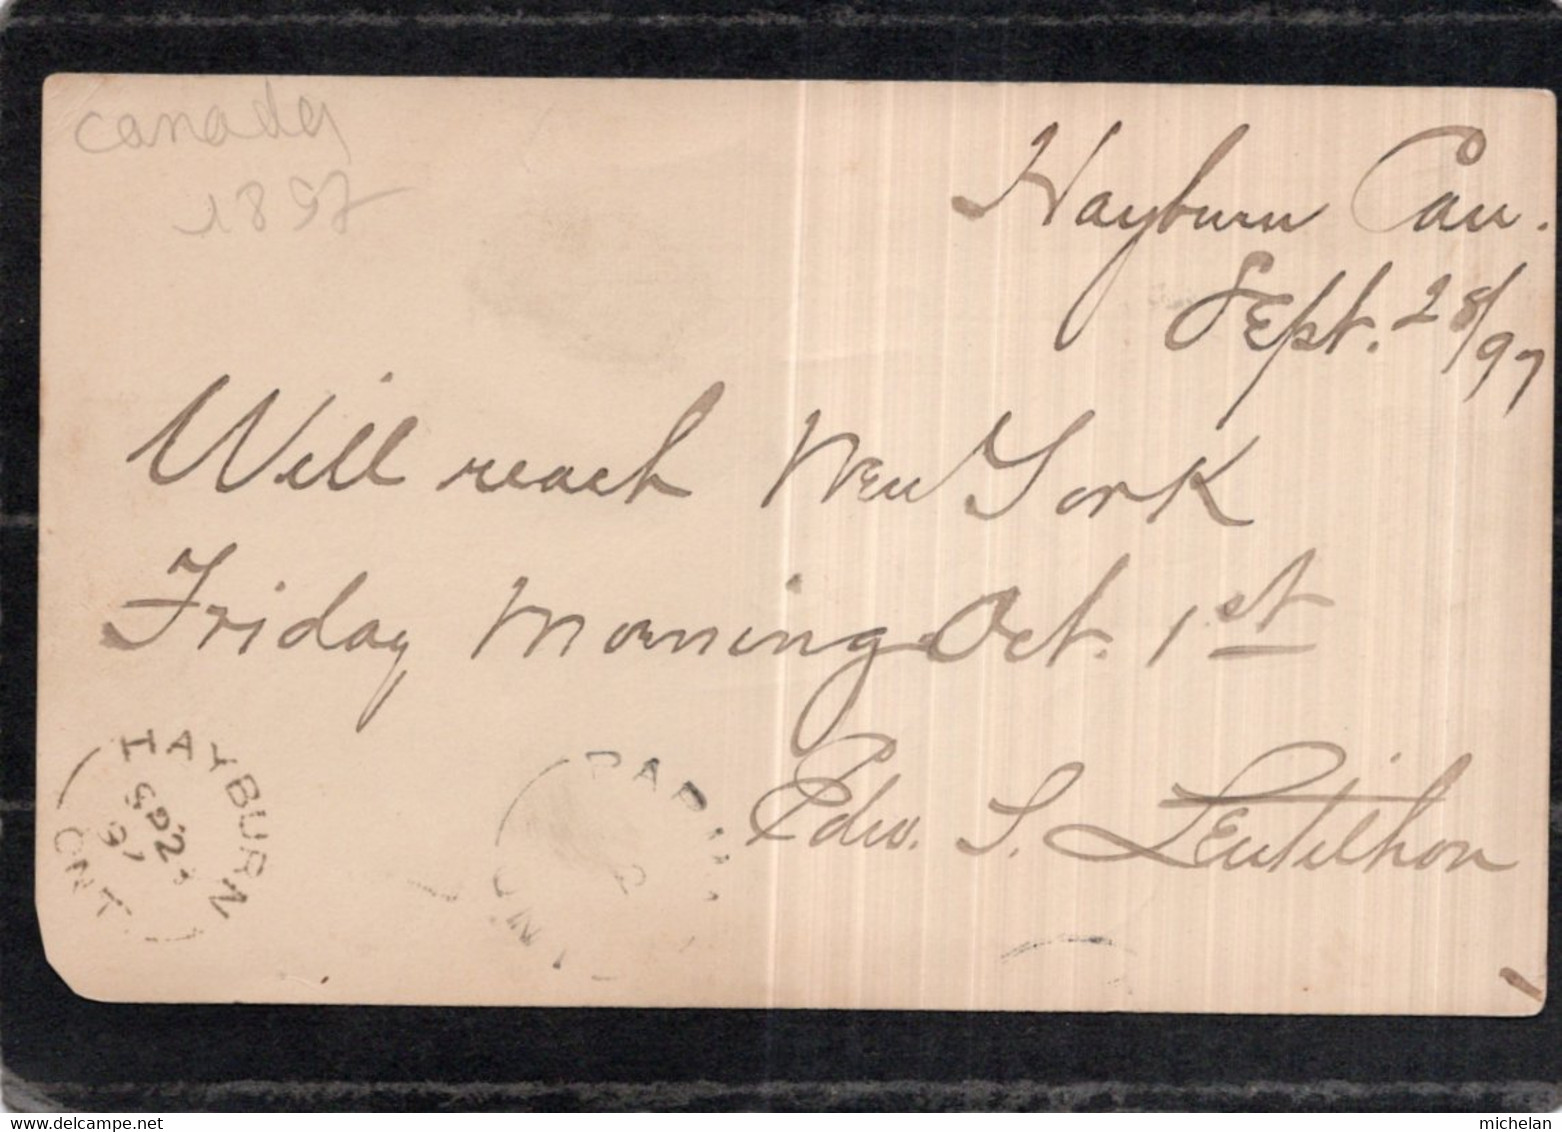 canada
1897
Hayburn Can.
Sept. 28/97
Will reach New York
Friday Morning Oct. 1st
Edw. S. Leutilhon
HAYBURN
SP 2
97
ONT.
ONT
delcampe.net
michelan